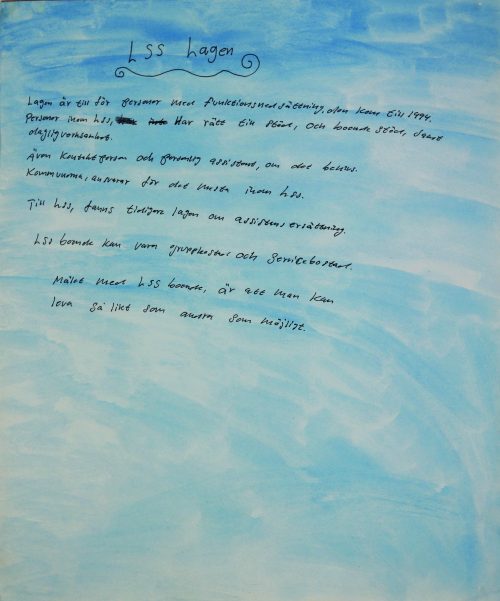 LSS Lagen
Lagen är till för personer med funktionsnedsättning, den kom till 1994.
Personer inom LSS, Har rätt till stöd, och boende stöd, samt
dagligverksamhet.
Även kontaktperson och personlig assistent, om det behövs.
Kommunerna, ansvarar för det mesta inom LSS.
Till LSS, fanns tidigare lagen om assistans ersättning.
LSS boende kan vara gruppbostad och servicebostad.
Målet med LSS boende, är att man kan
leva så likt som andra som möjligt.